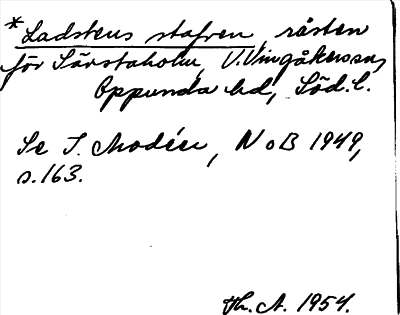 *Ladstens stafren, råsten
för Sävstaholm, V.Vingåkerssn,
Oppunda hd, Söd.l.
Se I. Modéer, NoB 1949,
s.163.
Th. A. 1954.